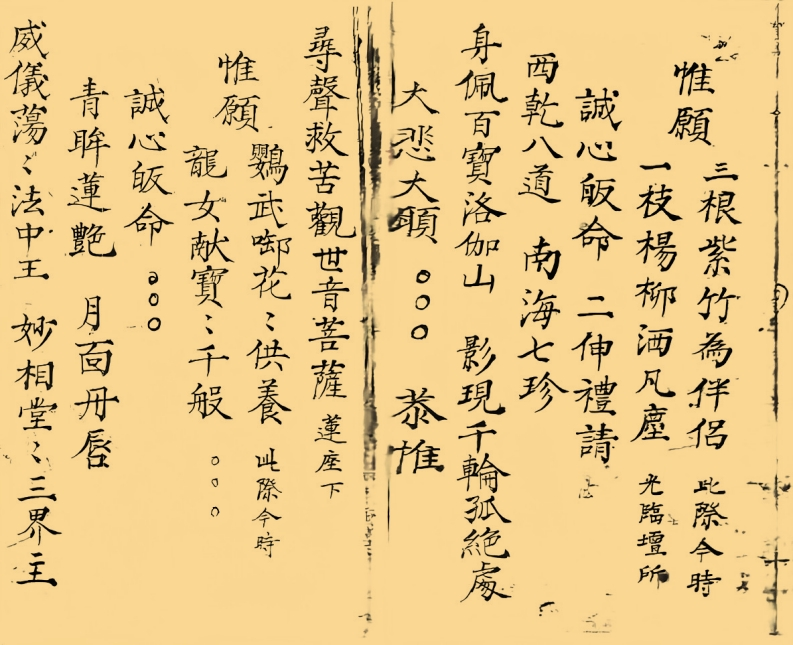 惟願
三根紫竹為伴侶 此際今時
一枝楊柳洒凡塵 光臨壇所
誠心皈命 二伸禮請
西乾八道 南海七珍
身佩百寶洛伽山 影現千輪孤絶處
大悲大願 ○○○ 恭惟
尋聲救苦觀世音菩薩 蓮座下
惟願
鸚武啣花〻供養 此際今時
龍女献寶〻千般 ○○○
誠心皈命 ○○○
青眸蓮艷 月面丹唇
威儀蕩〻法中王 妙相堂〻三界主